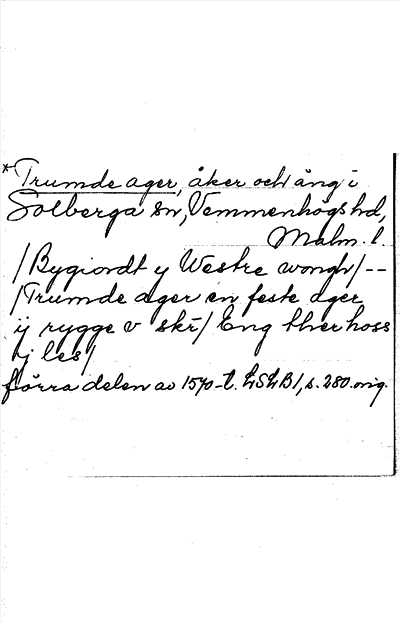 *Trumde ager, åker och äng i
Solberga sn, Vemmenhögs hd,
Malm. l.
/Bygiordt y Westre wongh/--
/Trumde ager en feste ager
ij rygge v skr/ Eng ther hoss
ij les/
förra delen av 1570-t. LSLB1, s. 280. orig.